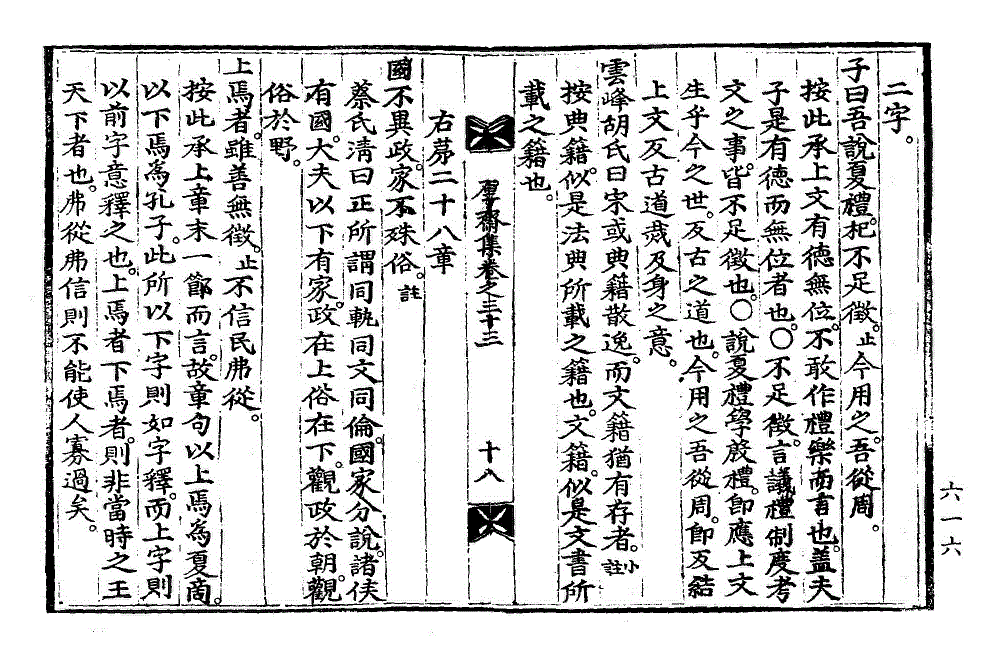 二字。
子曰吾說夏禮。杞不足徵。止今用之。吾從周。
按此承上文有德無位。不敢作禮樂而言也。盖夫
子是有德而無位者也。○不足徵。言議禮制度考
文之事。皆不足徵也。○說夏禮學殷禮。卽應上文
生乎今之世。反古之道也。今用之吾從周。卽反結
上文反古道烖及身之意。
雲峰胡氏曰宋或典籍散逸。而文籍猶有存者。小註
按典籍。似是法典所載之籍也。文籍。似是文書所
載之籍也。
右苐二十八章
國不異政。家不殊俗。註
蔡氏淸曰正所謂同軌同文同倫。國家分說。諸侯
有國。大夫以下有家。政在上俗在下。觀政於朝。觀
俗於野。
上焉者。雖善無徵。止不信民弗從。
按此承上章末一節而言。故章句以上焉爲夏商。
以下焉爲孔子。此所以下字則如字釋。而上字則
以前字意釋之也。上焉者下焉者。則非當時之王
天下者也。弗從弗信則不能使人寡過矣。
厚齋集卷之三十三
十八
六一六